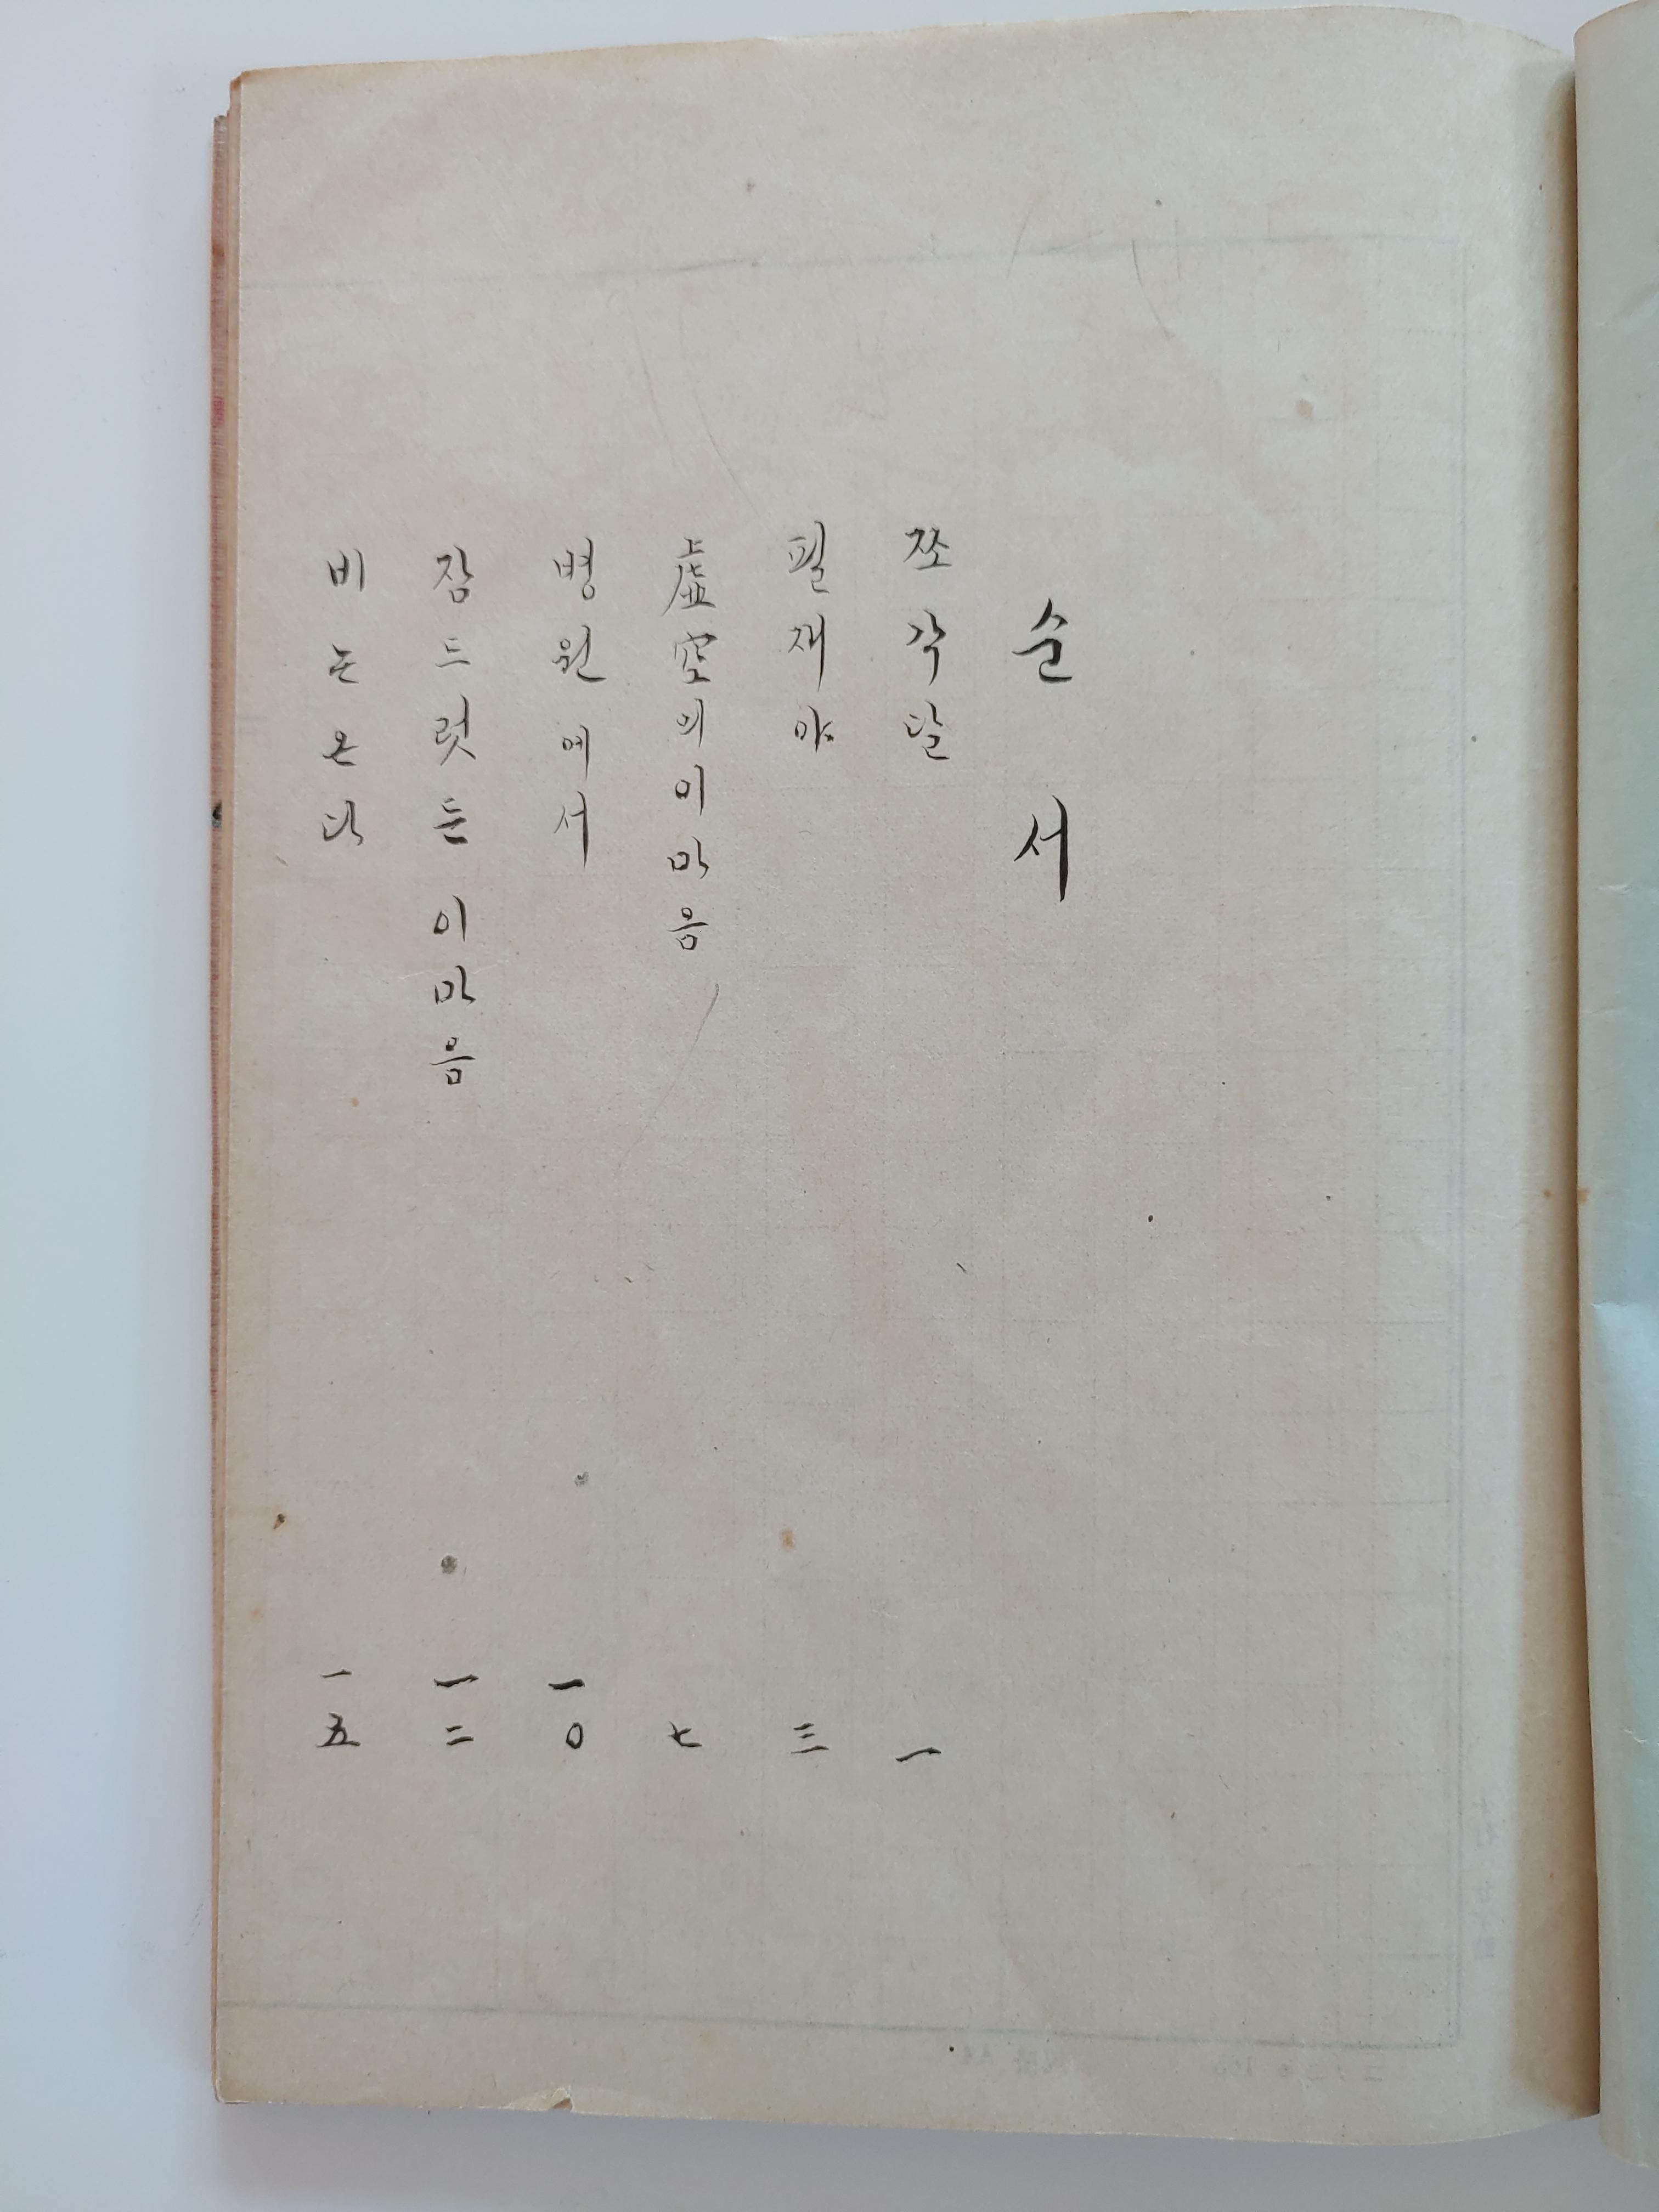 순서
쪼각달 一
필재야 三
虛空의이마음 七
병원에서 一〇
잠드렷든이마음 一二
비는온다 一五